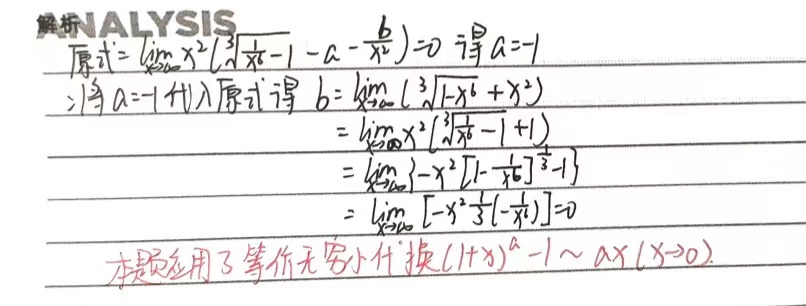 解析 ANALYSIS
原式=lim x→∞ x²(∛(1/x⁶-1) - a - b/x²)=0 得 a=-1
∴将a=-1代入原式得 b=lim x→∞ (∛(1-x⁶)+x²)
=lim x→∞ x²(∛(1/x⁶-1)+1)
=lim x→∞ {-x²[1-1/x⁶]^(1/3)-1}
=lim x→∞ [-x² 1/3(-1/x⁶)]=0
本题应用了等价无穷小代换(1+x)^a-1~ax(x→0).